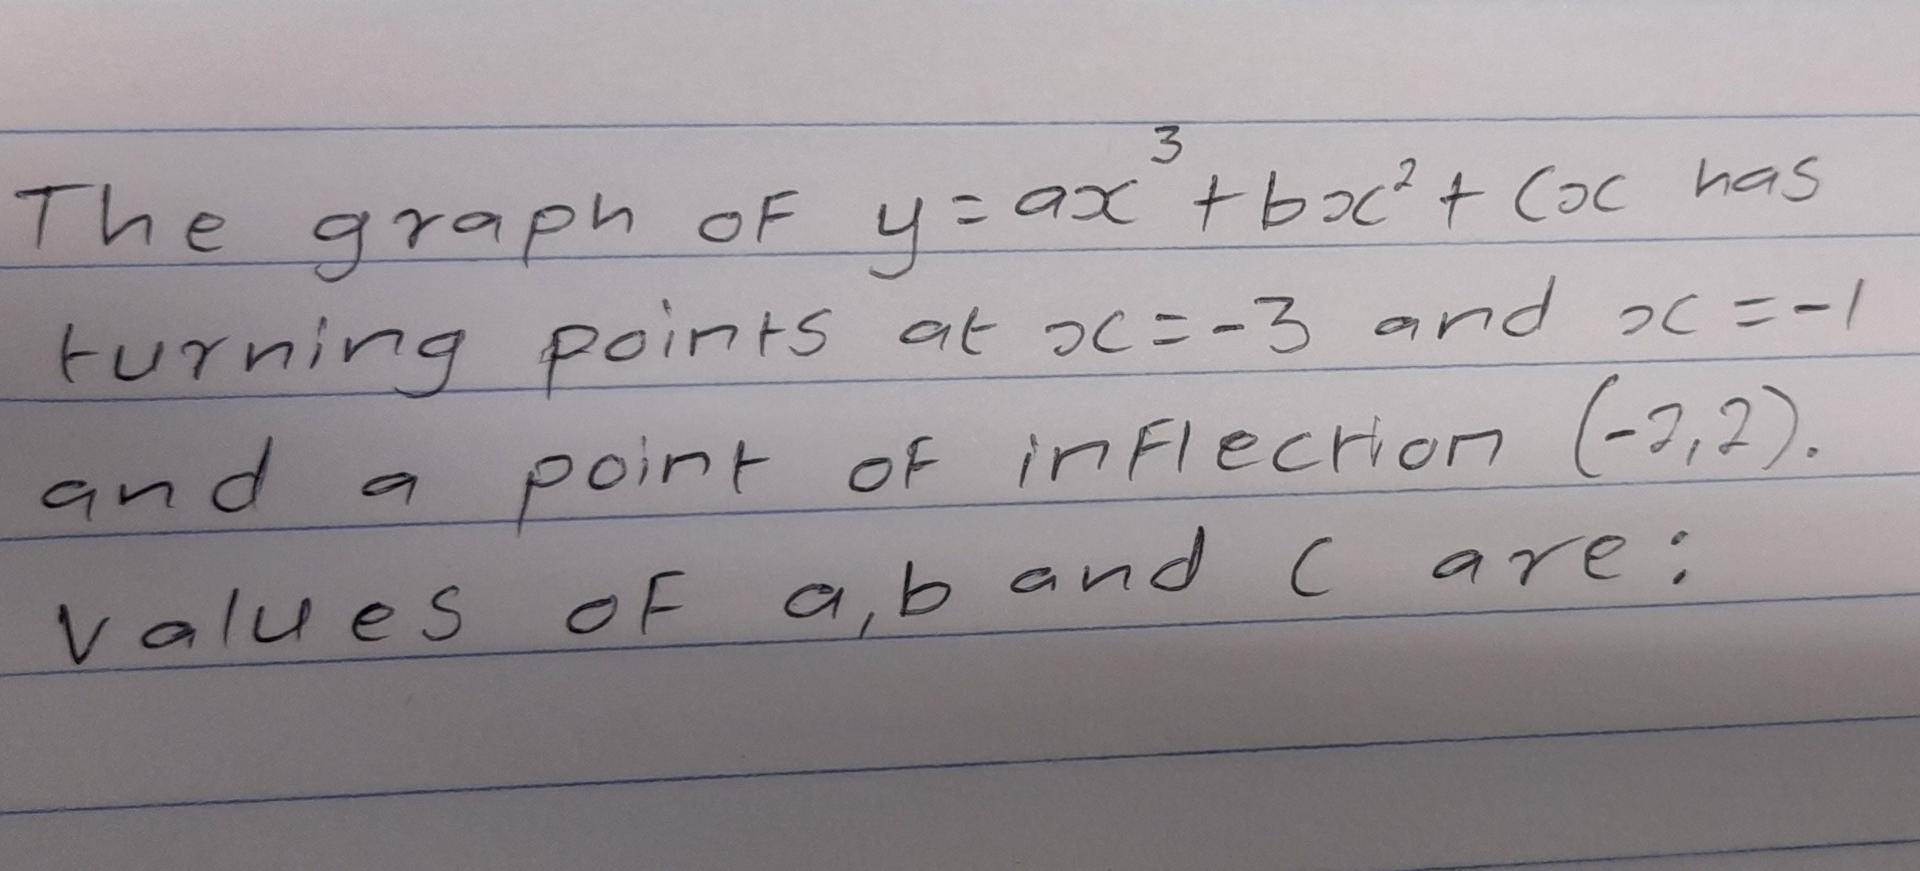 The graph of y=ax³+bx²+cx has
turning points at x=-3 and x=-1
and a point of inflection (-2,2).
Values of a,b and c are: